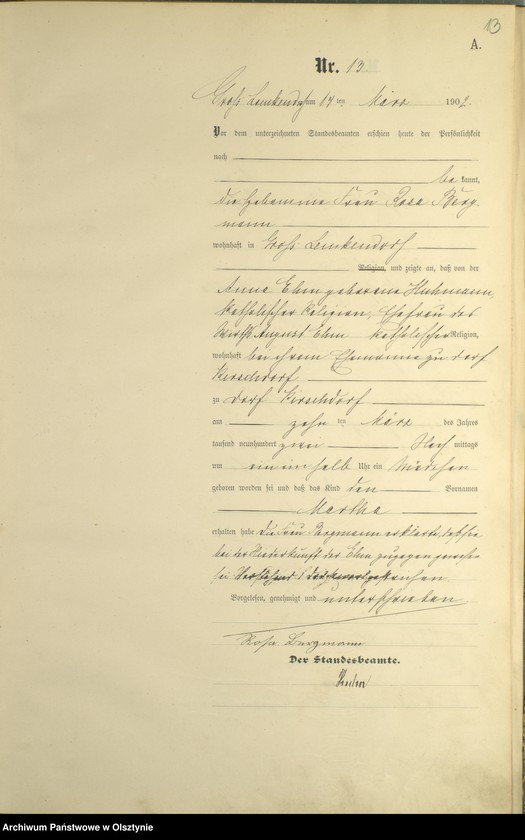 13
A.
Nr. 13.
Groß Lemkendorf am 14 ten März 1902.
Vor dem unterzeichneten Standesbeamten erschien heute der Persönlichkeit
nach
be kannt,
die Hebamme Frau Rosa Berg-
mann
wohnhaft in Groß Lemkendorf
Religion, und zeigte an, daß von der
Anna Ehm geborene Huhmann,
katholischer Religion, Ehefrau des
Wirth August Ehm katholischer Religion,
wohnhaft bei ihrem Ehemanne zu Dorf
Kirschdorf
zu Dorf Kirschdorf
am zehn ten März des Jahres
tausend neunhundert zwei Nach mittags
um ein einhalb Uhr ein Mädchen
geboren worden sei und daß das Kind den Vornamen
Martha
erhalten habe. Die Frau Bergmann erklärte, daß sie
bei der Niederkunft der Ehm zugegen gewesen
sei.
Vorgelesen, genehmigt und unterschrieben
Rosa Bergmann
Der Standesbeamte.
Archiwum Państwowe w Olsztynie